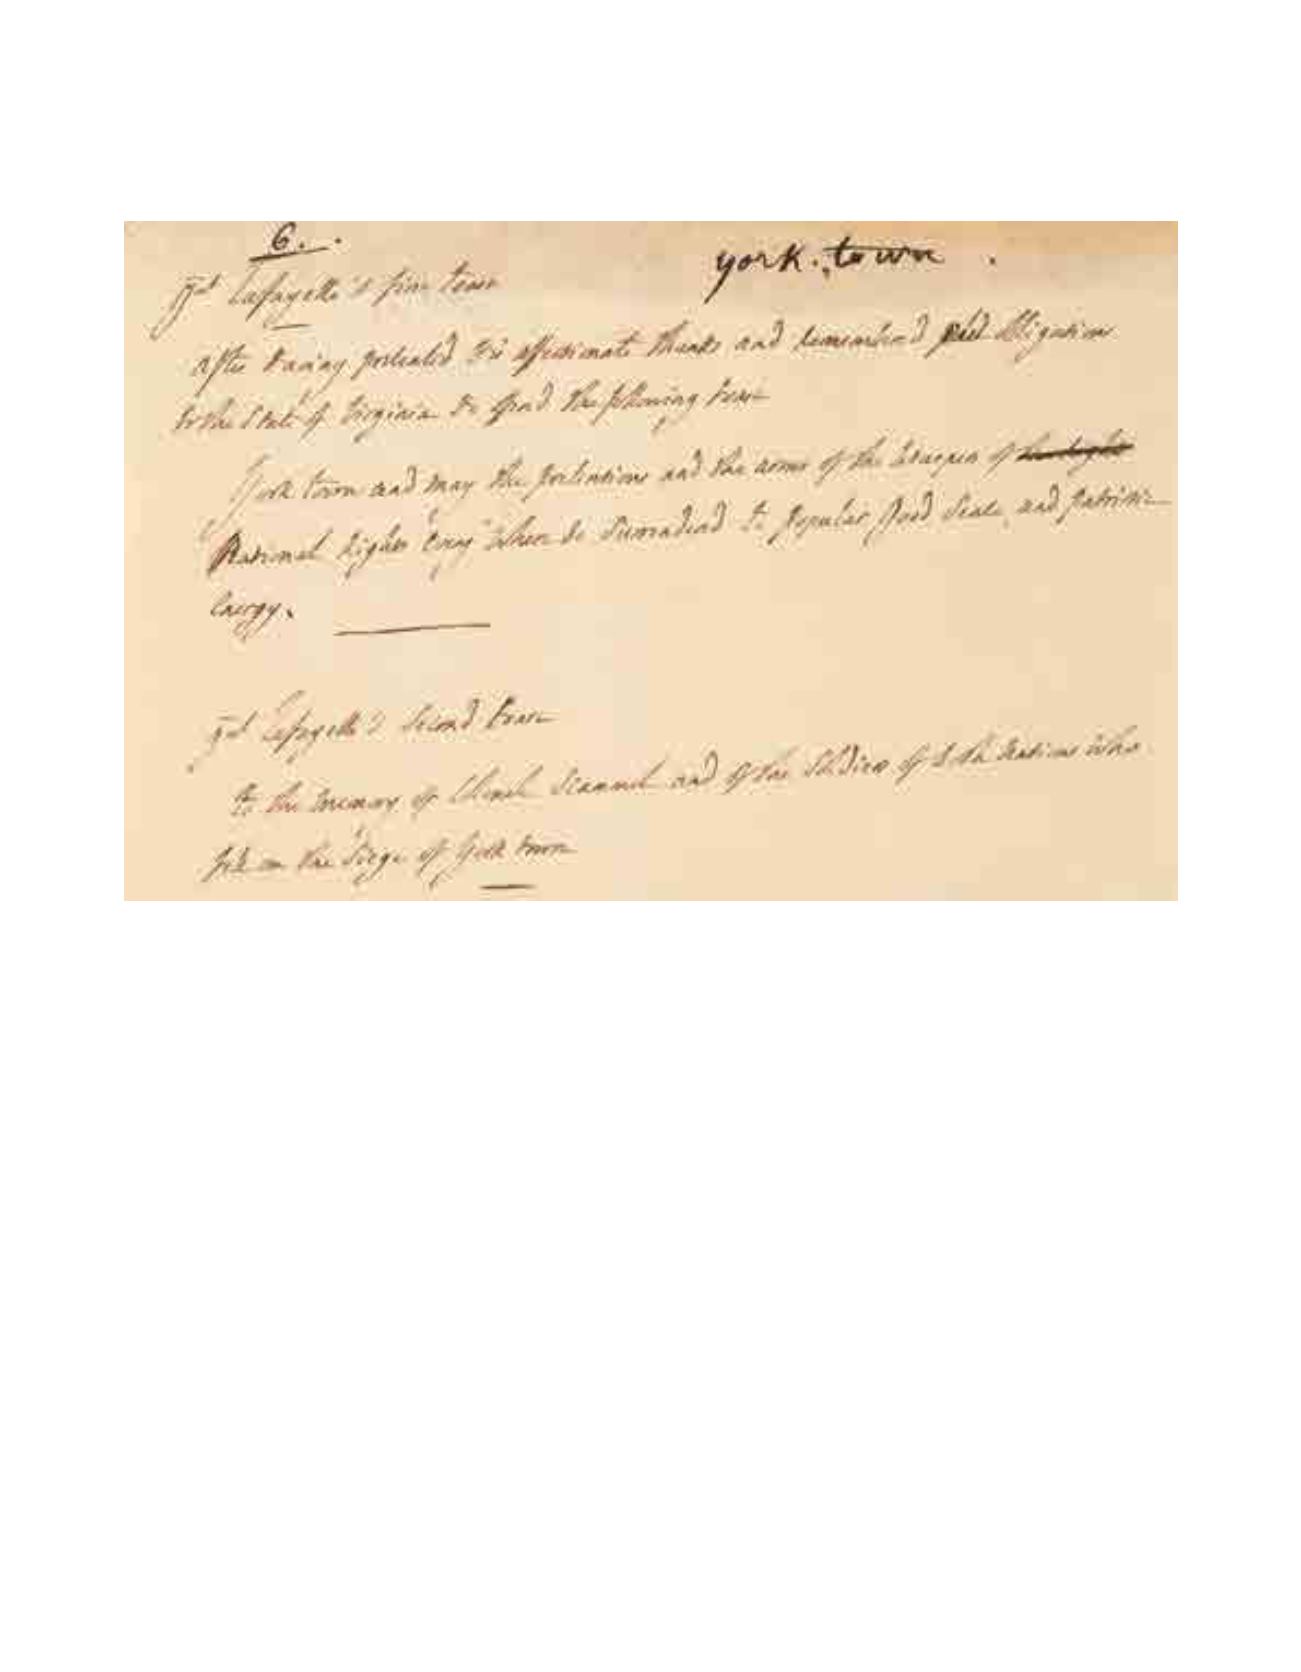 6.
york. town.
gnl Lafayette's first toast
after having presented his affectionate thanks and remembered obligations
to the State of Virginia he offered the following toast
York town and may the pretentions and the arms of the of the right
National rights every where be Surrendered to popular good Sense, and patriotic
Energy.
gnl Lafayette's Second toast
to the memory of Colonel Scammel and of the Soldiers of both Nations who
fell in the Siege of York town